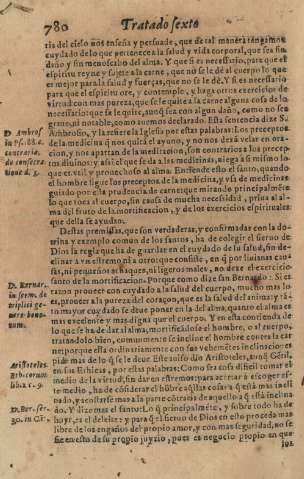 780 Tratado sexto
ria del cielo nos enseña y persuade, que de tal manera tengamos
cuydado de lo que pertenece a la salud y vida corporal, que sea sin
daño y sin menoscabo del alma. Y que si es necessario, para que el
espiritu reyne y sujete a la carne, que no se le dè al cuerpo lo que
es mejor para la salud y fuerças, que no se le dè. Y si es necessario
para que el espiritu ore, y contemple, y haga otros exercicios de
virtud con mas pureza, que se le quite a la carne alguna cosa de lo
necessario; que se le quite, aunque sea con algun daño, como no sea
graue, ni notable, como auemos declarado. Esta sentencia dize S.
D. Ambros. Ambrosio, y la refiere la Iglesia por estas palabras: Los preceptos
in Ps. 88. & de la medicina que nos quita el ayuno, y no nos dexa velar en ora-
cion, y nos apartan de la meditacion, son contrarios a los precep-
de consecra tos diuinos: y assi el que se da a los medicinas, niega a si mismo lo
tione d. 5. que es vtil y prouechoso al alma. Entiende esto el santo, quando
el hombre sigue los preceptos de la medicina, y vsa de medicinas
guiado por esta prudencia de carne que mirando principalmente
lo que toca al cuerpo, sin causa de mucha necessidad, priua al al-
ma del fruto de la mortificacion, y de los exercicios espirituales
que della se ayudan.
Destas premissas, que son verdaderas, y confirmadas con la do-
trina y exemplo comun de los santos, ha de colegir el sieruo de
Dios la regla que ha de guardar en el cuydado de la salud, sin de-
clinar a vn estremo ni a otro: que consiste, en que por liuianas cau-
sas, ni pequeños achaques, ni ligeros males, no dexe el exercicio
D. Bernar. santo de la mortificacion. Porque como dize san Bernardo: Si es
in serm. de sano proueer con cuydado a la salud del cuerpo, mucho mas lo
triplici ge- es, proueer a la pureza del coraçon, que es la salud del anima: y tã-
nere bono- to mayor cuydado se deue poner en la del alma, quanto el alma es
rum. mas excelente y mas digna que el cuerpo. Y en esta contienda de
lo que se ha de dar al alma, mortificandose el hombre, o al cuerpo,
tratandolo bien, comunmente se incline el hombre contra la car-
ne: porque ella ordinariamente con vehementes inclinaciones
pide mas de lo que se le deue. Este auiso dio Aristoteles, aunque Gẽtil,
Aristoteles. en sus Ethicas, por estas palabras: Como sea cosa dificil tomar el
Ethicorum medio de la virtud, sin dar en estremos: para acertar a escoger es-
lib. 2. c. 9. te medio, ha de cõsiderar el hõbre a quales cosas està mas incli-
nado, y esforçarse mas a la parte cõtraria de aquello a que està inclina-
D. Ber. ser- do. Y dize mas el santo: Lo que principalmente, y sobre todo ha de
huyr, es el deleite: y para que el sieruo de Dios en ello proceda mas
libre de los engaños del propio amor, y con mas seguridad, no se
fie en esto de su propio juyzio, pues es negocio propio en que